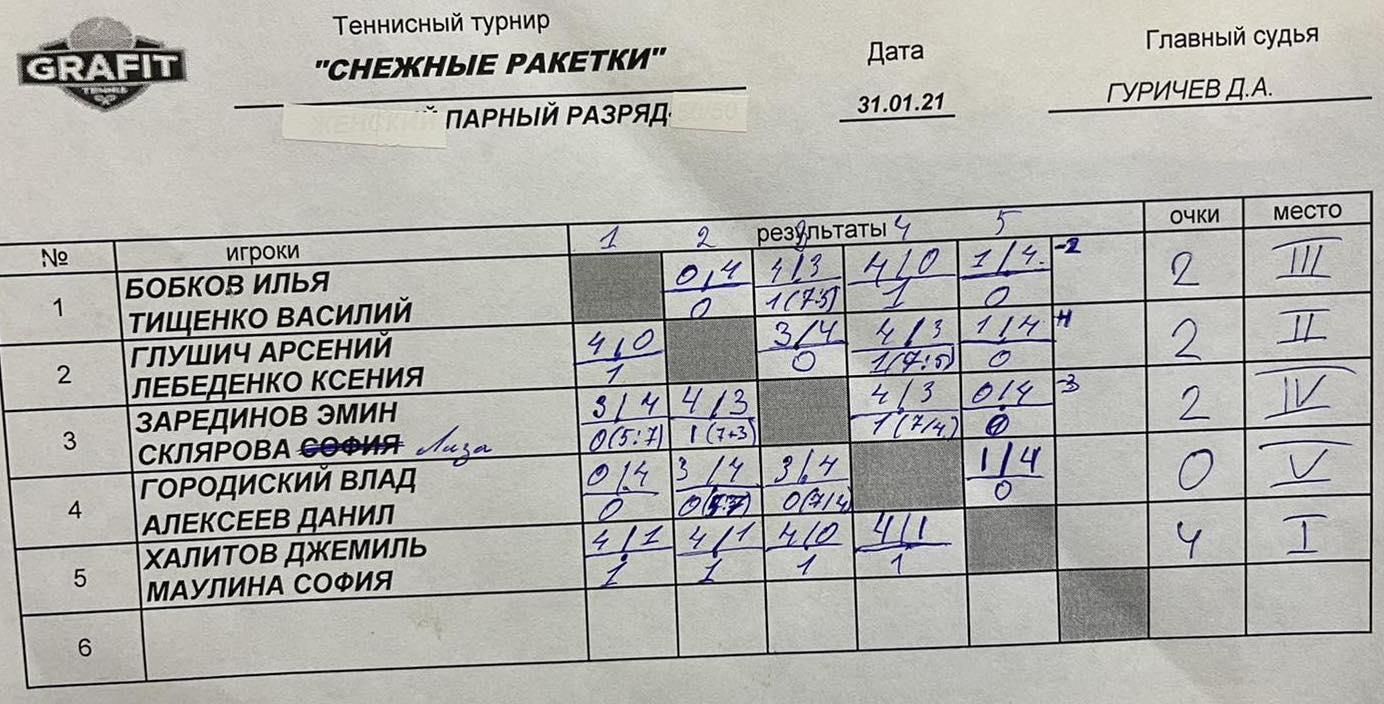 GRAFIT
TENNIS
Теннисный турнир
"СНЕЖНЫЕ РАКЕТКИ"
ЖЕНСКИЙ ПАРНЫЙ РАЗРЯД 50/50
Дата
31.01.21
Главный судья
ГУРИЧЕВ Д.А.
№ игроки результаты очки место
1 2 3 4 5
1 БОБКОВ ИЛЬЯ 0/4 4/3 4/0 1/4 -2 2 III
ТИЩЕНКО ВАСИЛИЙ 0 1(7:5) 1 0
2 ГЛУШИЧ АРСЕНИЙ 4/0 3/4 4/3 1/4 2 II
ЛЕБЕДЕНКО КСЕНИЯ 1 0 1(7:5) 0
3 ЗАРЕДИНОВ ЭМИН 3/4 4/3 4/3 0/4 -3 2 IV
СКЛЯРОВА СОФИЯ Лиза 0(5:7) 1(7+3) 1(7/4) 0
4 ГОРОДИСКИЙ ВЛАД 0/4 3/4 3/4 1/4 0 V
АЛЕКСЕЕВ ДАНИЛ 0 0(5:7) 0(7/4) 0
5 ХАЛИТОВ ДЖЕМИЛЬ 4/1 4/1 4/0 4/1 4 I
МАУЛИНА СОФИЯ 1 1 1 1
6